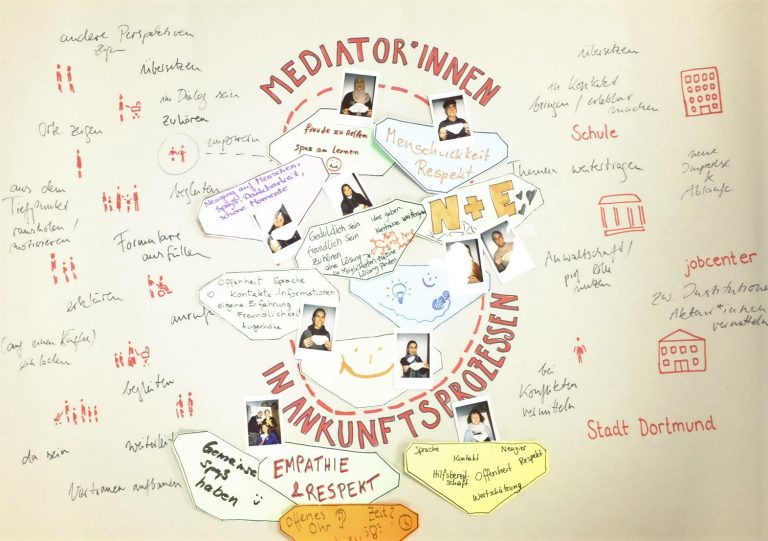 MEDIATOR*INNEN
IN ANKUNFTSPROZESSEN
andere Perspektiven
zeigen
übersetzen
im Dialog sein
zuhören
Orte zeigen
empowern
aus dem
Tiefpunkt
rausholen/
motivieren
begleiten
Formulare
ausfüllen
erklären
(auf einen Kaffee)
einladen
begleiten
da sein
Vertrauen aufbauen
Freude zu helfen
spass am lernen
Menschlickeit
Respekt
Neugirig auf Menschen,
Spaß, Dankbarkeit,
schöne Momente
N+E
Geduldich sein
freundlich sein
zuhören
eine Lösung
Lösung finden
Offenheit Sprache
Kontakte-Informationen
eigene Erfahrung
Freundlichkeit
Augenhöhe
Gemeinsa
spaß
haben
EMPATHIE
& RESPEKT
Offenes
Ohr
Zeit?
Sprache
Kontakt
Neugier
Respekt
Hilfsbereit-
schaft
Offenheit
Wertschätzung
übersetzen
in Kontakt
bringen / erlebbar
machen
Schule
Themen weitertragen
neue
Impulse
&
Abläufe
Anwaltschaft /
nutzen
jobcenter
zw. Institutionen
Akteur*innen
vermitteln
bei
Konflikten
vermitteln
Stadt Dortmund